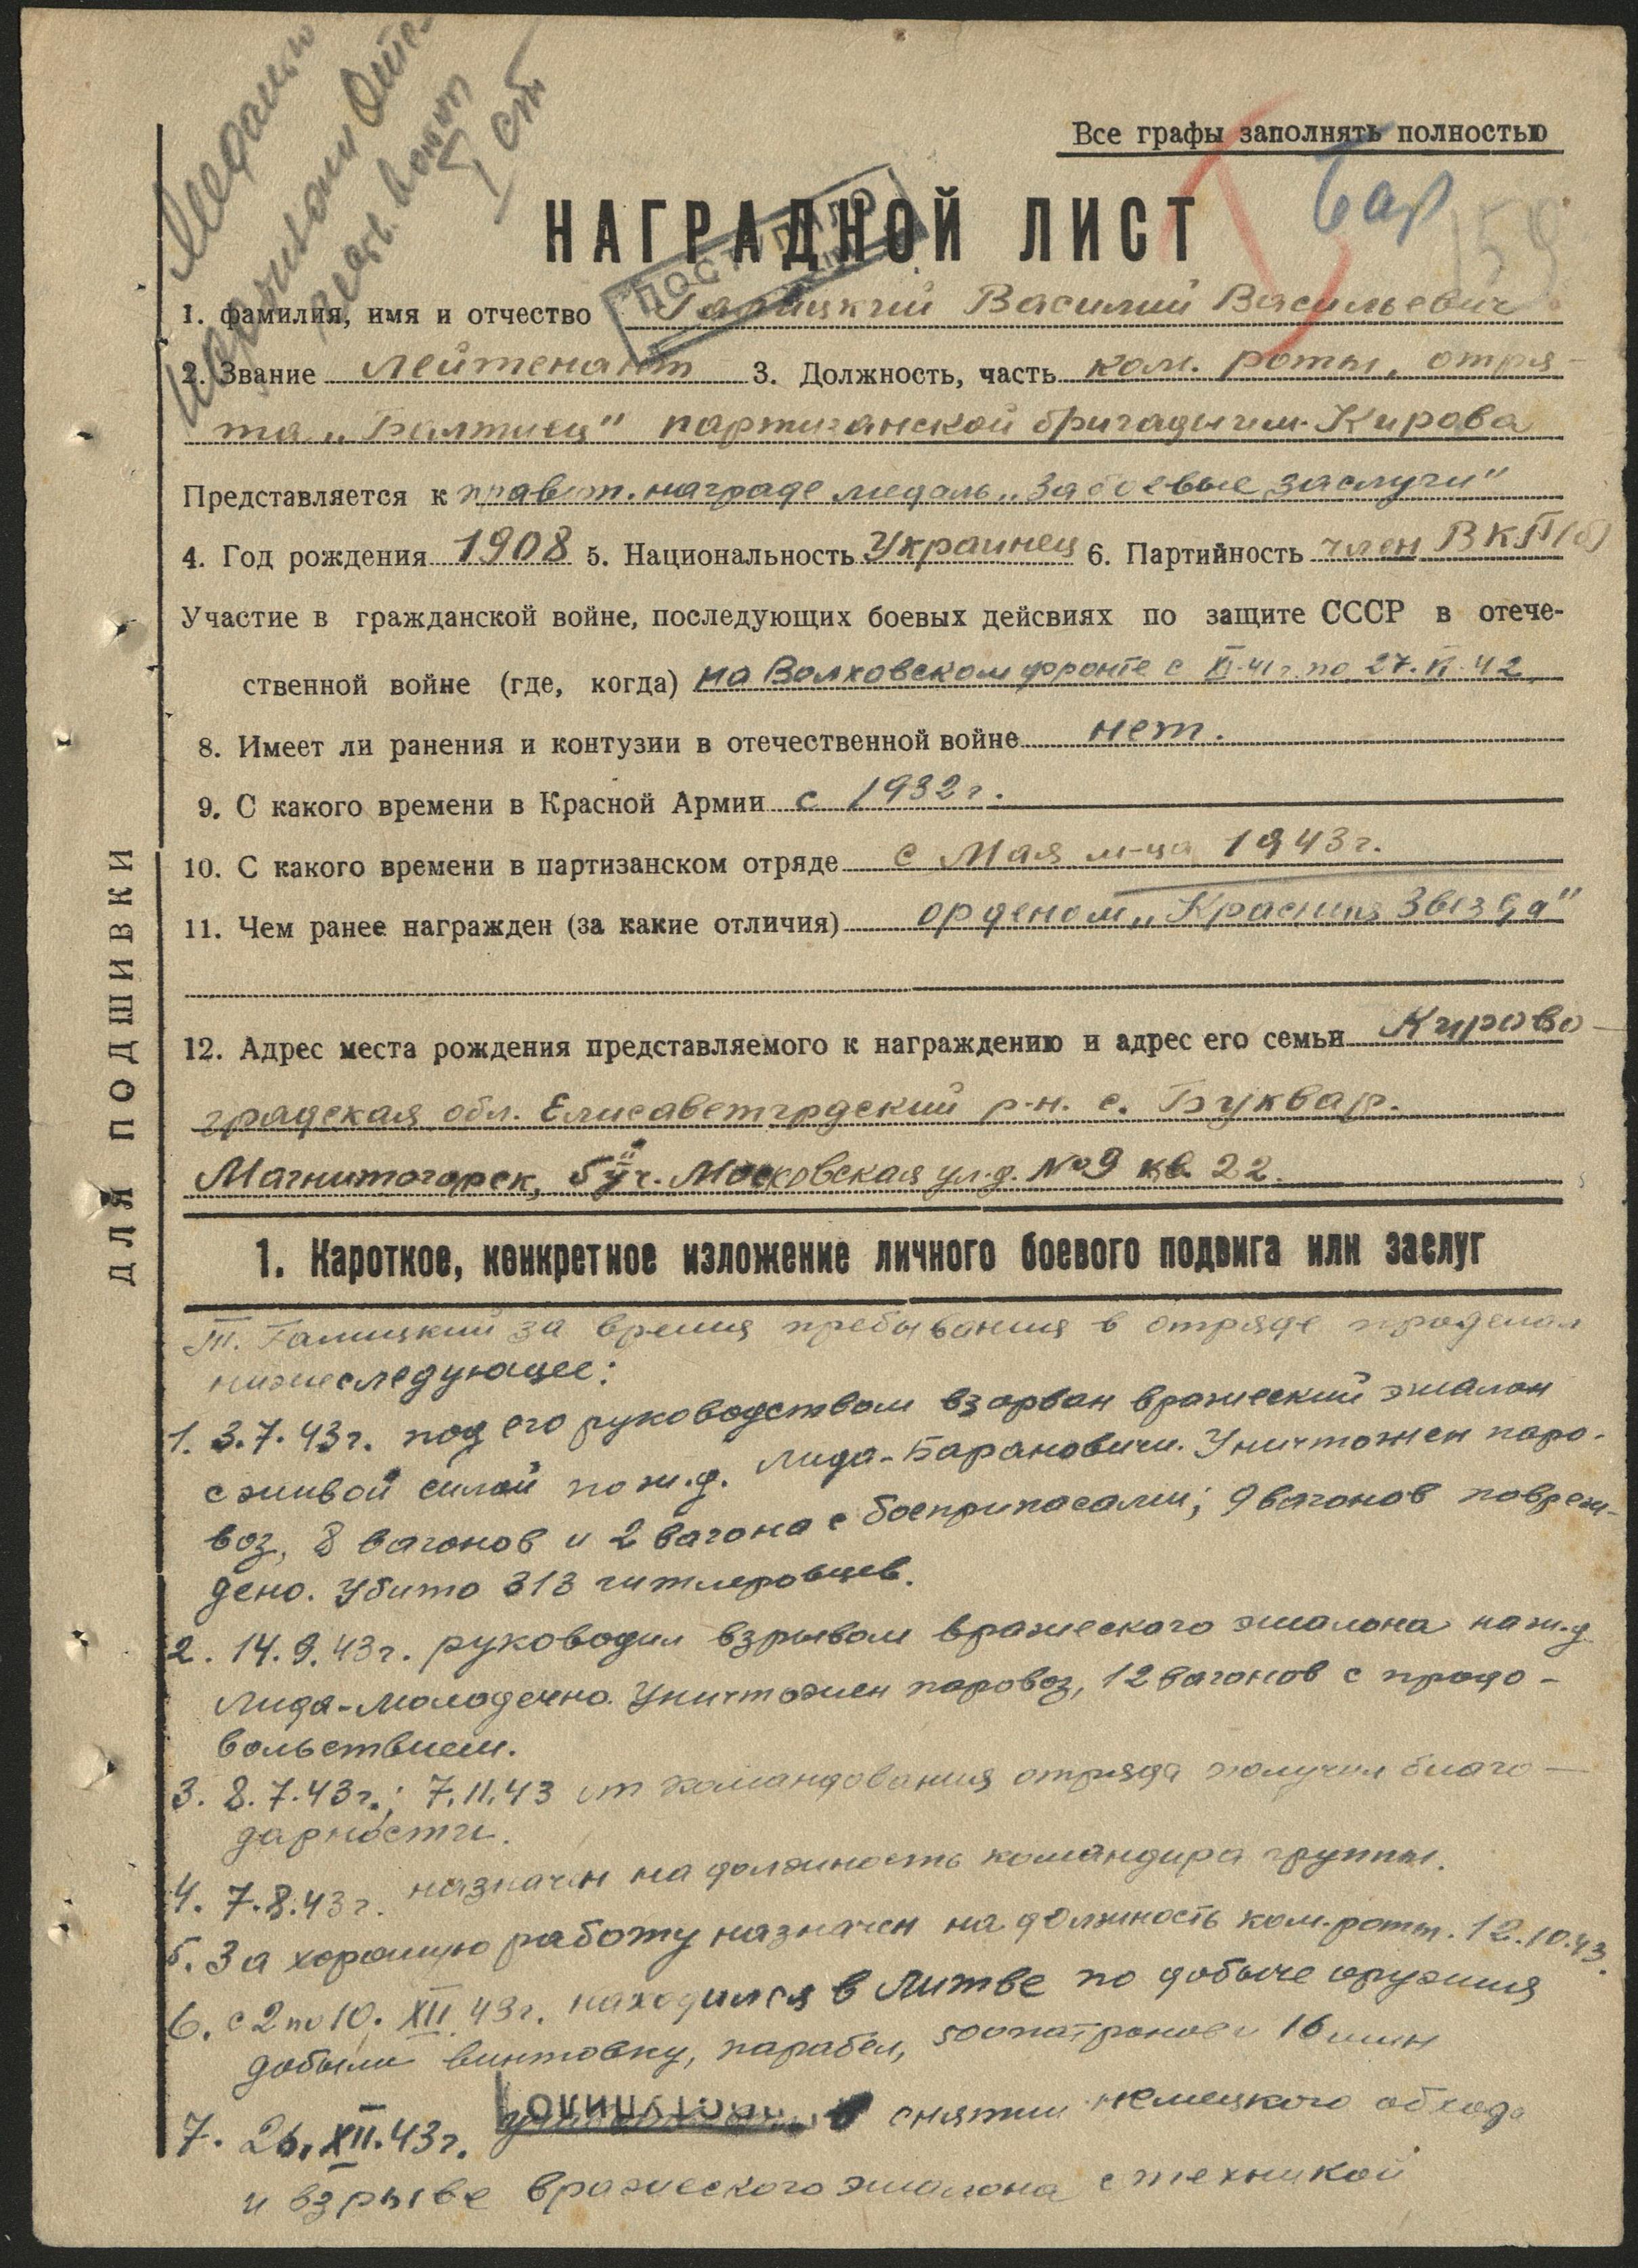 Все графы заполнять полностью
Бар
159
НАГРАДНОЙ ЛИСТ
ПОСТУПИЛО
1. фамилия, имя и отчество Галицкий Василий Васильевич
2. Звание лейтенант 3. Должность, часть ком. роты, отря-
та „Балтиец" партизанской бригады им. Кирова
Представляется к правит. награде медаль „За боевые заслуги"
4. Год рождения 1908 5. Национальность Украинец 6. Партийность член ВКП(б)
Участие в гражданской войне, последующих боевых дейсвиях по защите СССР в отече-
ственной войне (где, когда) на Волховском фронте с XI-41г. по 27.VI.42
8. Имеет ли ранения и контузии в отечественной войне нет.
9. С какого времени в Красной Армии с 1932г.
10. С какого времени в партизанском отряде с Мая м-ца 1943г.
11. Чем ранее награжден (за какие отличия) орденом „Красная Звезда"
12. Адрес места рождения представляемого к награждению и адрес его семьи Кирово-
градская обл. Елисаветгрдский р-н. с. Буквар.
Магнитогорск, 5й уч. Московская ул. д. №9 кв. 22.
ДЛЯ ПОДШИВКИ
1. Кароткое, конкретное изложение личного боевого подвига или заслуг
Т. Галицкий за время пребывания в отряде проделал
нижеследующее:
1. 3.7.43г. под его руководством взорван вражеский эшалон
с живой силой по ж.д. Лида-Барановичи. Уничтожен паро-
воз, 8 вагонов и 2 вагона с боеприпасами; 9 вагонов повреж-
дено. Убито 313 гитлеровцев.
2. 14.9.43г. руководил взрывом вражеского эшалона на ж.д.
Лида-Молодечно. Уничтожен паровоз, 12 вагонов с продо-
вольствием.
3. 8.7.43г.; 7.11.43 от командования отряда получил благо-
дарности.
4. 7.8.43г. назначен на должность командира группы.
5. За хорошую работу назначен на должность ком. роты. 12.10.43.
6. с 2 по 10. XII 43г. находился в Литве по добыче оружия
добыли винтовку, парабел, 500 патронов и 16 мин
7. 26.XII.43г. в снятии немецкого обхода
ПОСТУПИЛО
и взрыве вражеского эшалона с техникой